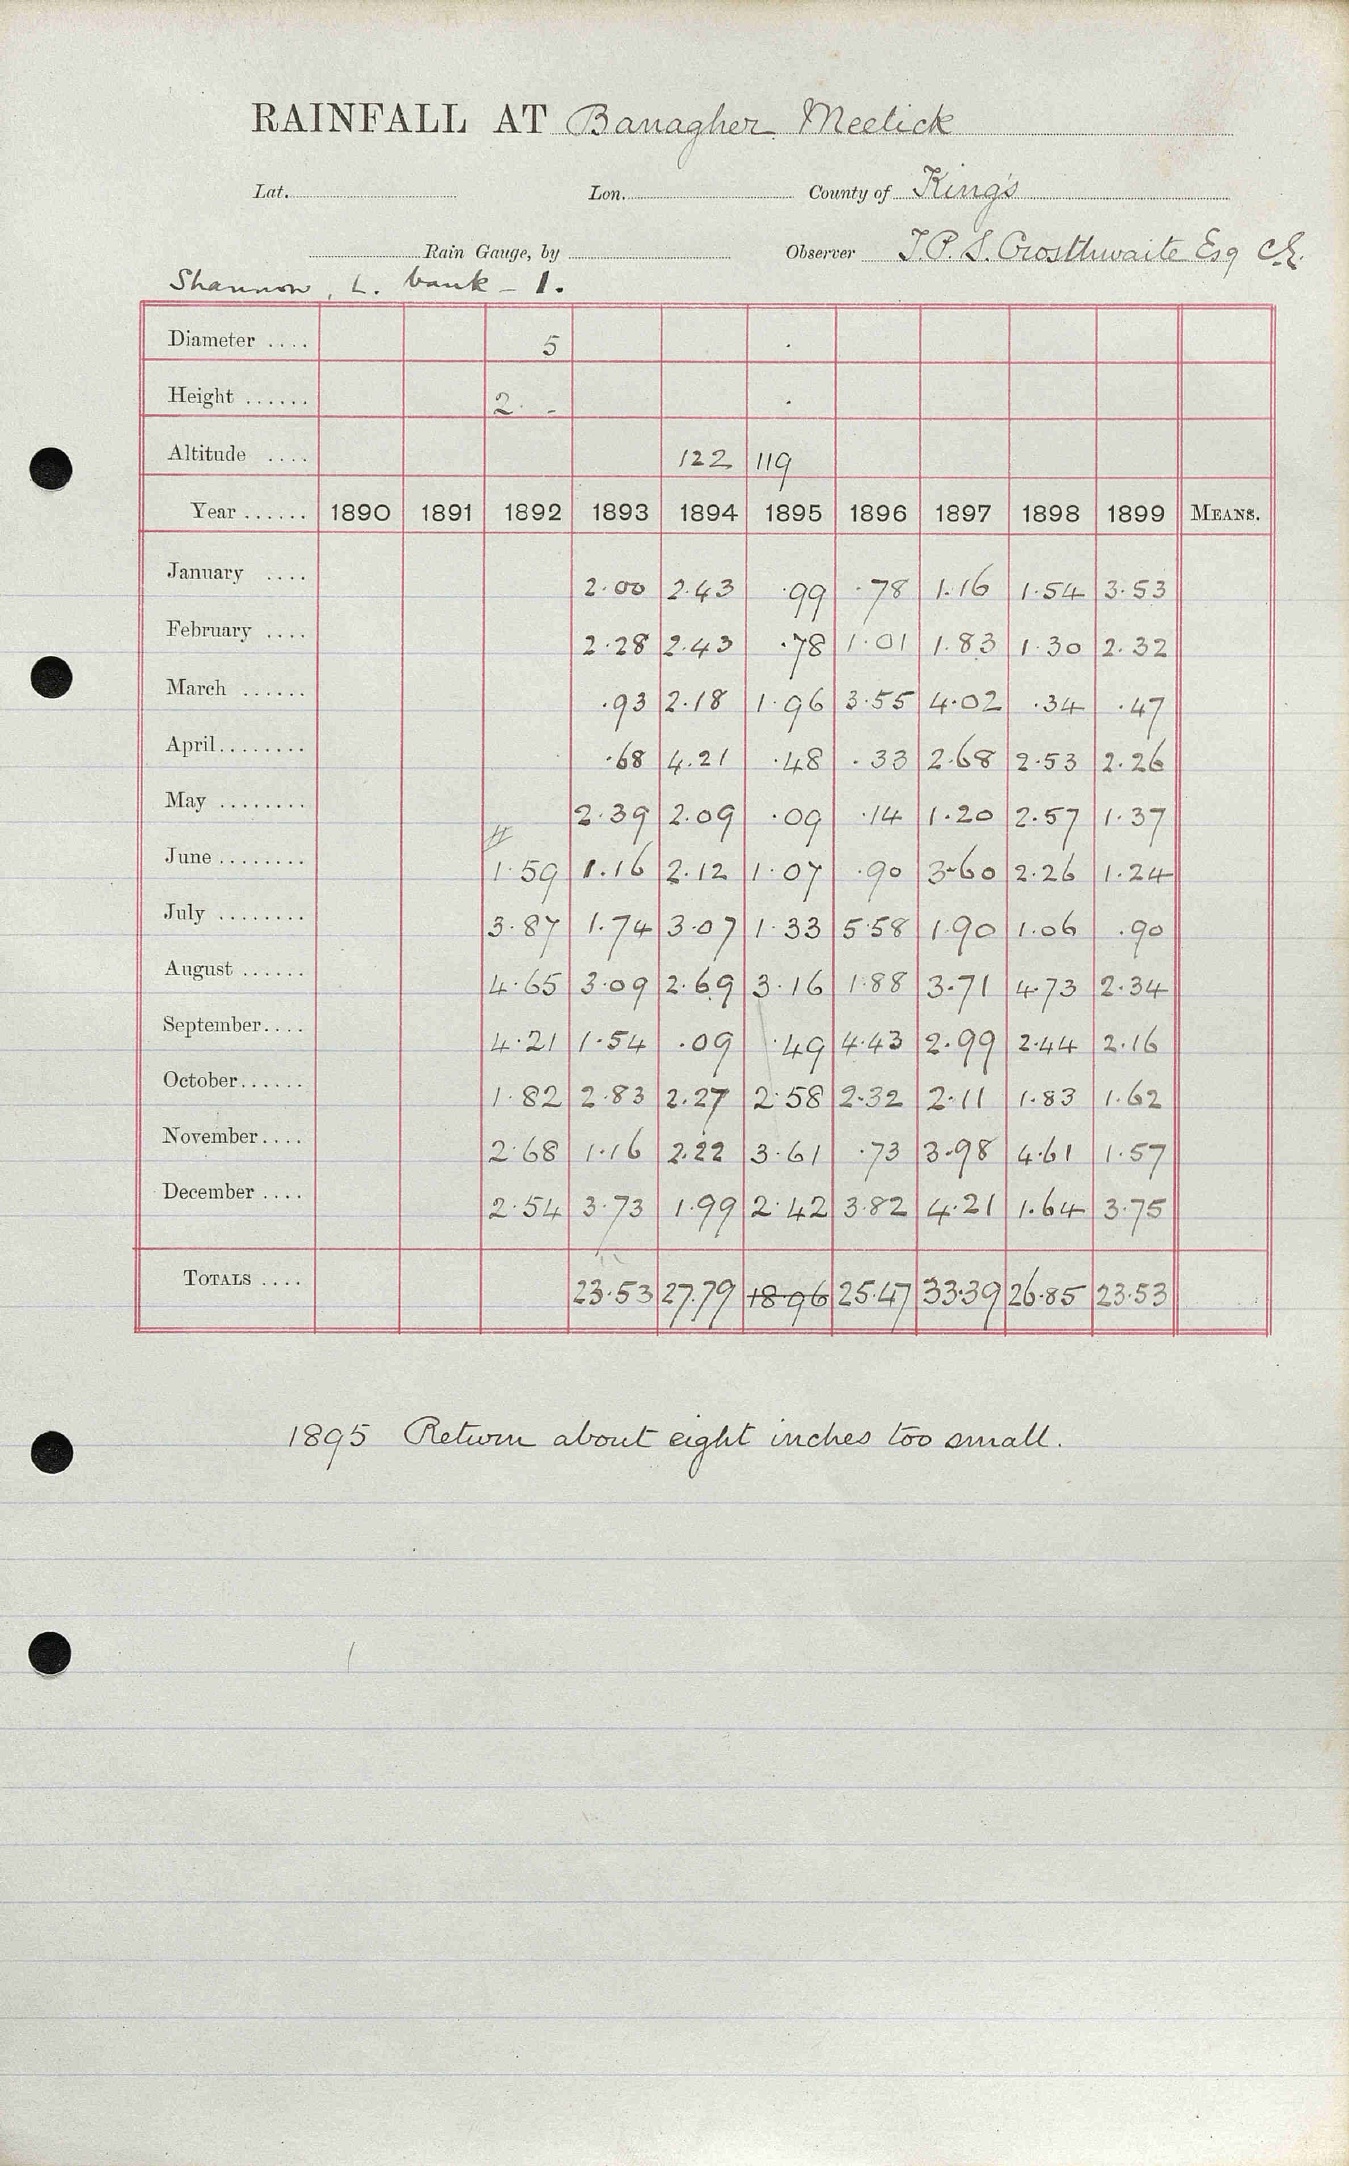 RAINFALL AT Banagher Meelick
Lat. Lon. County of King's
Rain Gauge, by Observer J.P.S. Crosthwaite Esq C.E.
Shannon, L. bank - 1.
Diameter .... 5
Height ...... 2. -
Altitude .... 122 119
Year ...... 1890 1891 1892 1893 1894 1895 1896 1897 1898 1899 MEANS.
January .... 2.00 2.43 .99 .78 1.16 1.54 3.53
February .... 2.28 2.43 .78 1.01 1.83 1.30 2.32
March ...... .93 2.18 1.96 3.55 4.02 .34 .47
April ........ .68 4.21 .48 .33 2.68 2.53 2.26
May ........ 2.39 2.09 .09 .14 1.20 2.57 1.37
June ........ 1.59 1.16 2.12 1.07 .90 3.60 2.26 1.24
July ........ 3.87 1.74 3.07 1.33 5.58 1.90 1.06 .90
August ...... 4.65 3.09 2.69 3.16 1.88 3.71 4.73 2.34
September .... 4.21 1.54 .09 .49 4.43 2.99 2.44 2.16
October ...... 1.82 2.83 2.27 2.58 2.32 2.11 1.83 1.62
November .... 2.68 1.16 2.22 3.61 .73 3.98 4.61 1.57
December .... 2.54 3.73 1.99 2.42 3.82 4.21 1.64 3.75
TOTALS .... 23.53 27.79 18.96 25.47 33.39 26.85 23.53
1895 Return about eight inches too small.